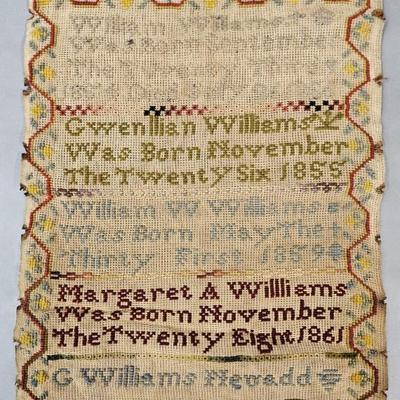 William Williams
Was Born
The Twenty
Gwenllian Williams
Was Born November
The Twenty Six 1855
William W Williams
Was Born May The
Thirty First 1859
Margaret A Willliams
Was Born November
The Twenty Eight 1861
G Williams